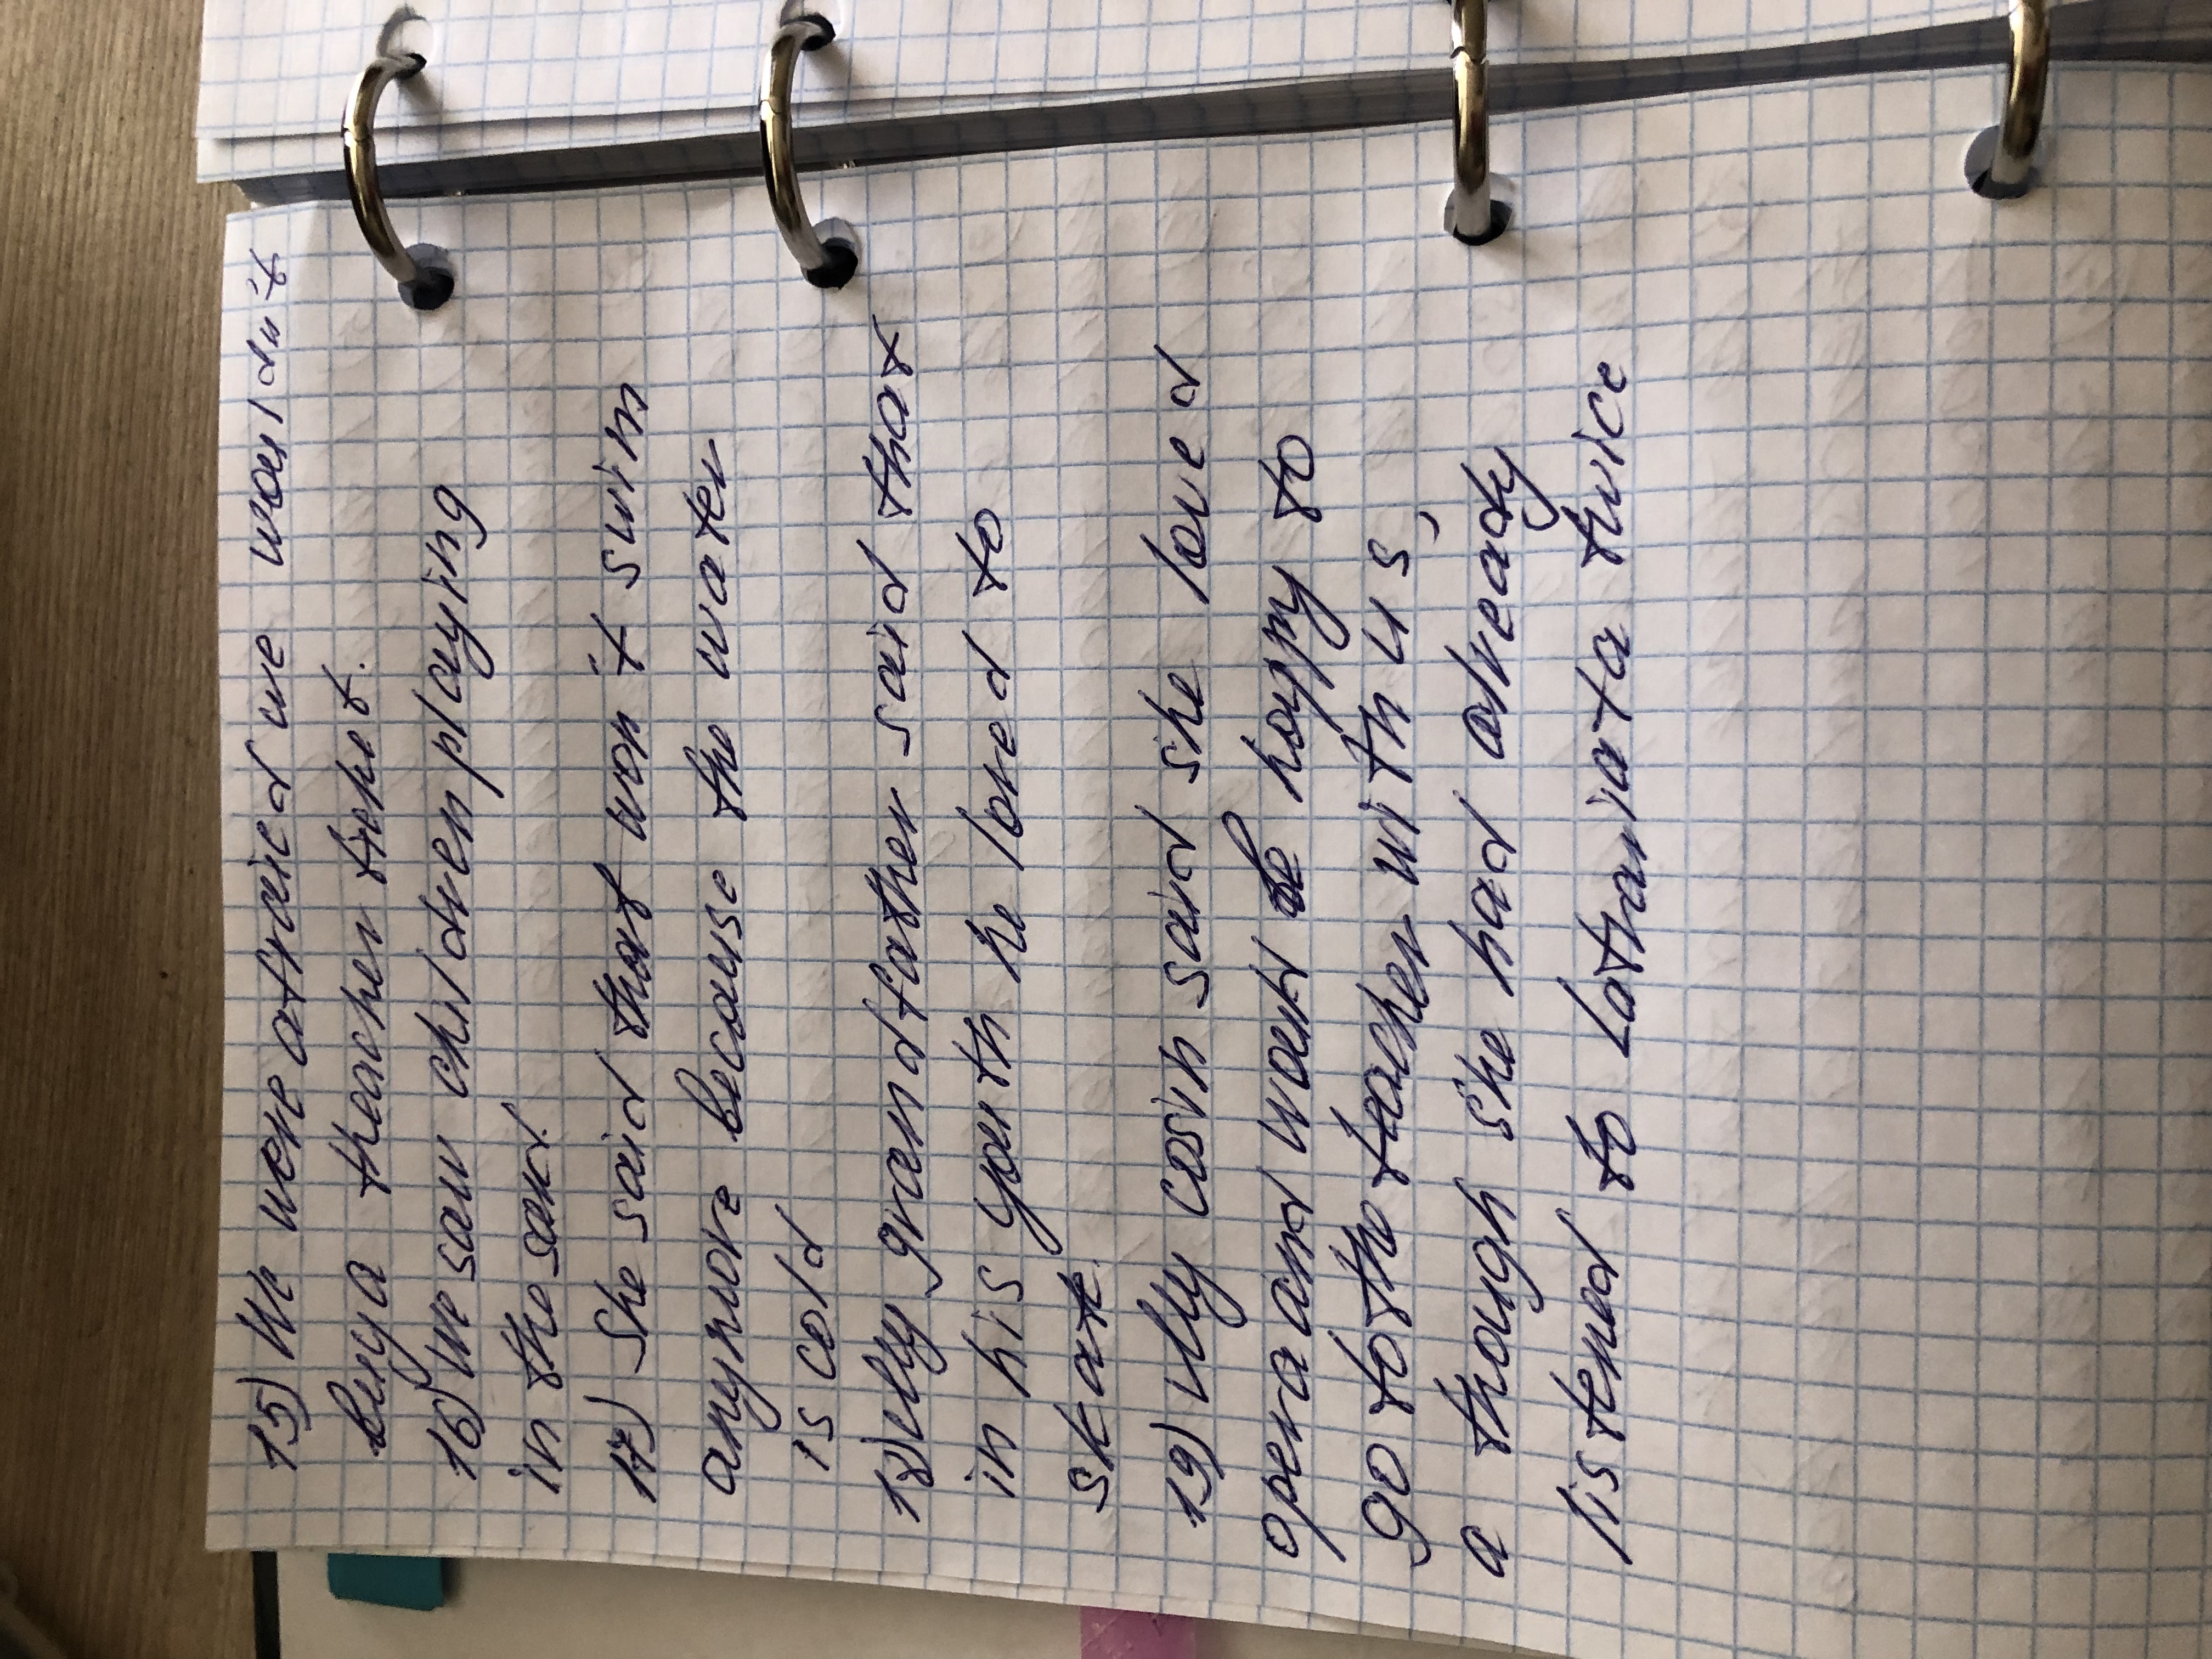 15) We were afraid we wouldn't
buy a theacher ticket.
16) We saw children playing
in the sand.
17) She said that won't swim
anymore because the water
is cold
18) My grandfather said that
in his youth he loved to
skate.
19) My cosin said she loved
opera and would be happy to
go to the teacher with us,
a though she had already
listened to Latraviata twice